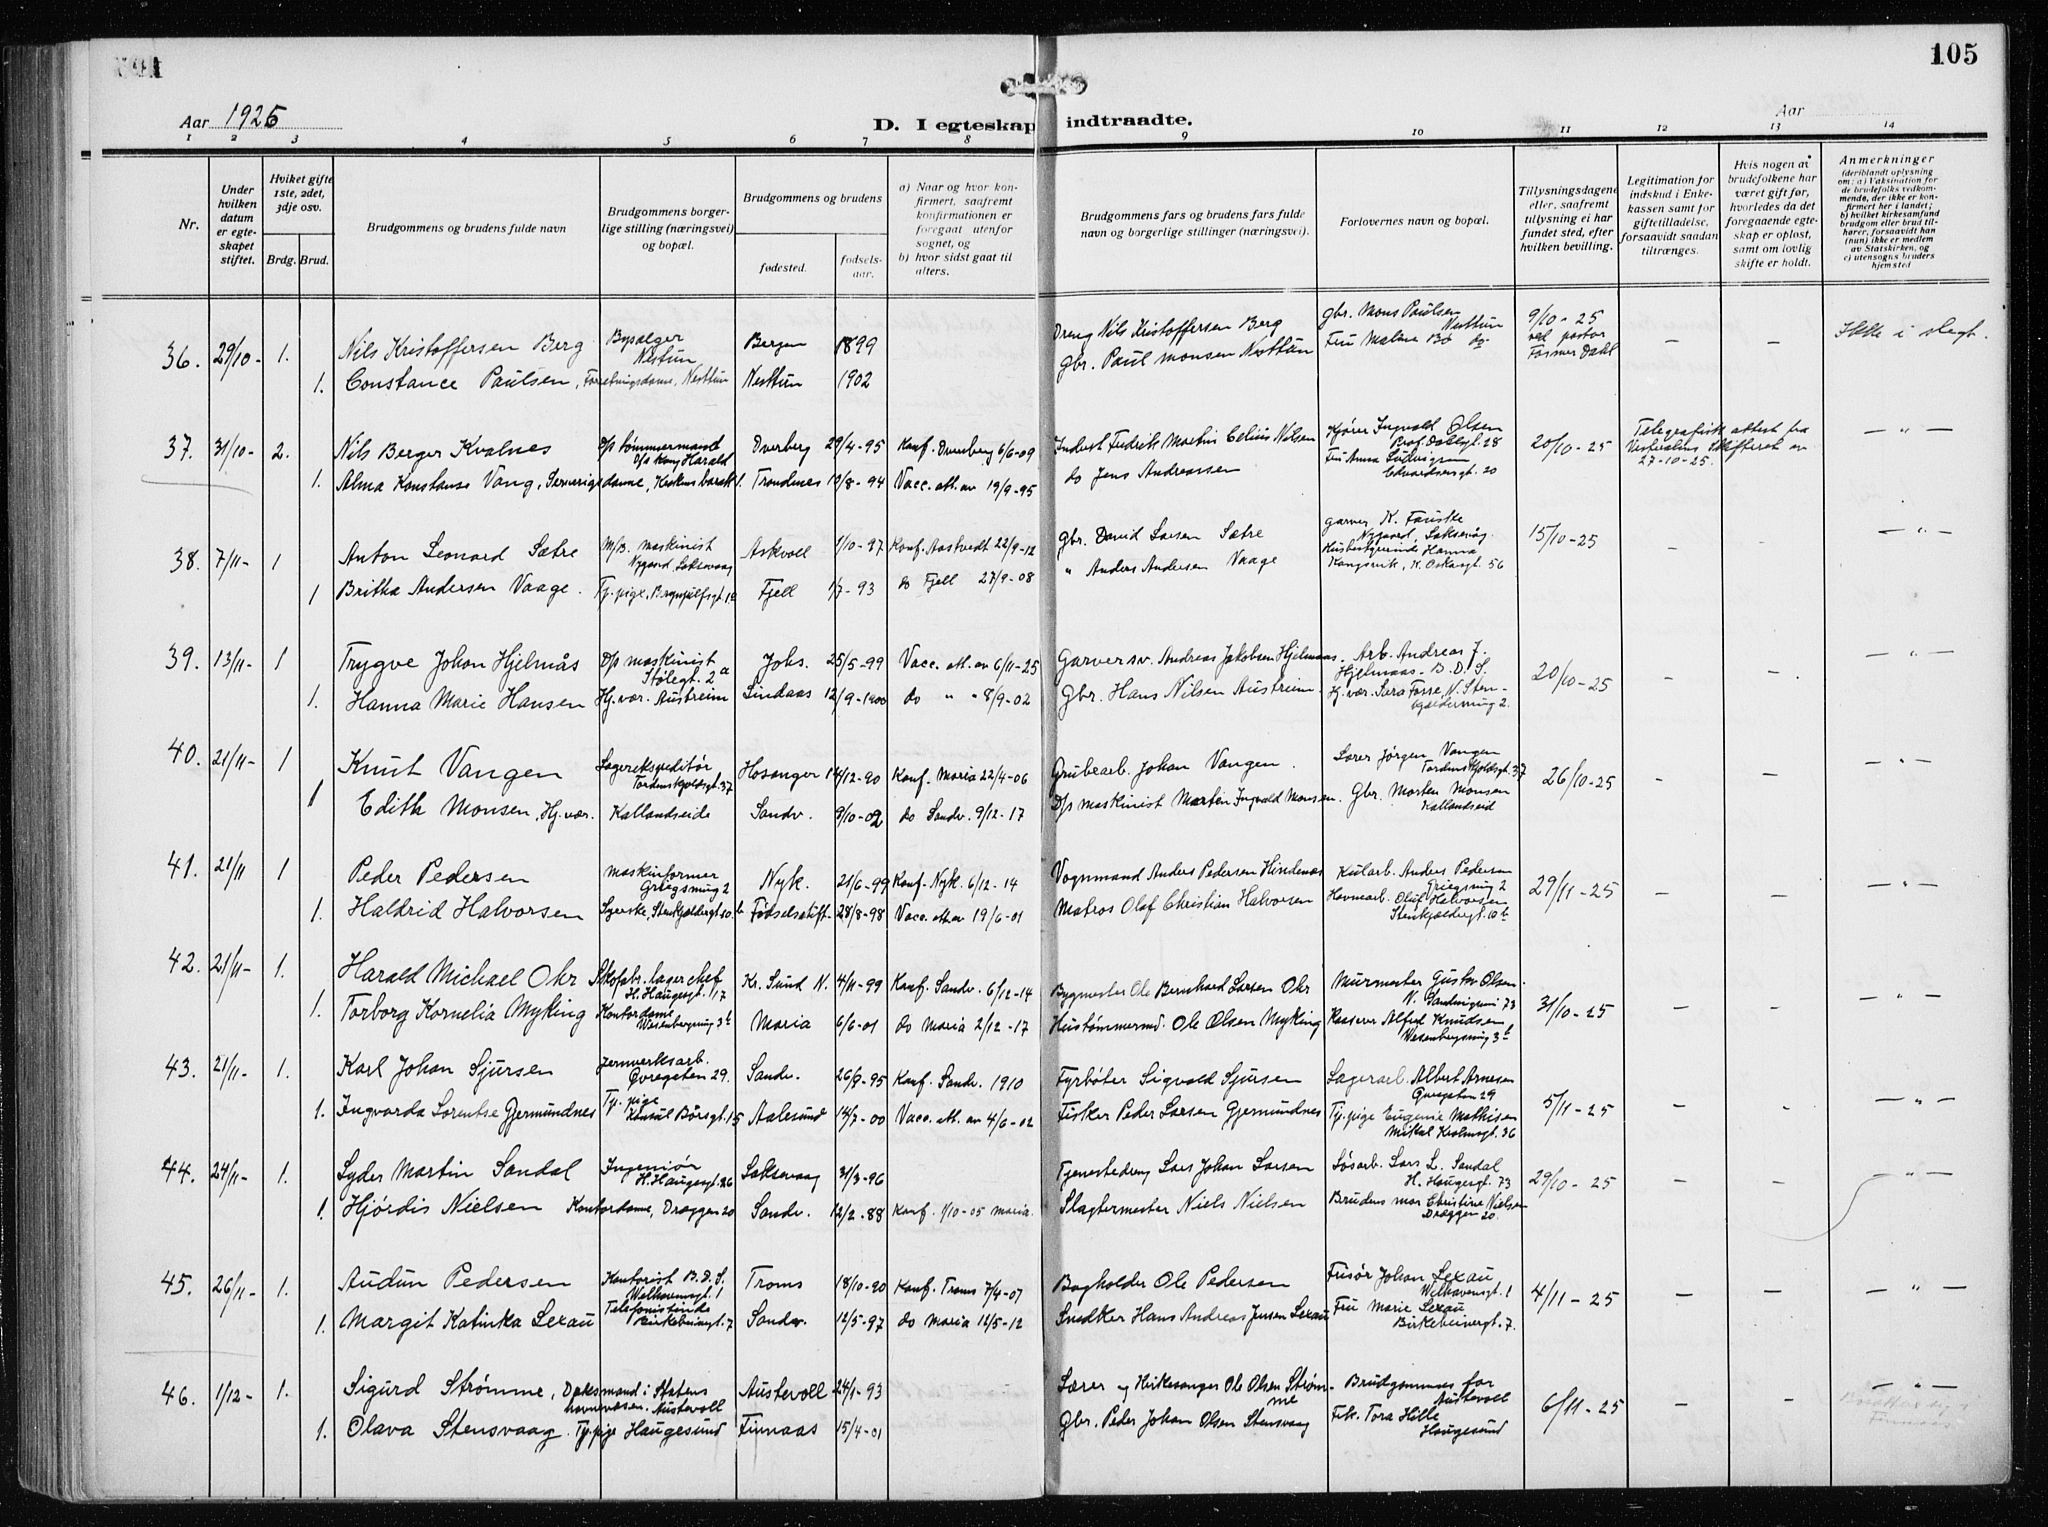 105
Aar 1925
D. I egteskap indtraadte.
Aar
1 2 3 4 5 6 7 8 9 10 11 12 13 14
Nr.
Under hvilken datum er egteskapet stiftet.
Hviket gifte 1ste, 2det, 3dje osv.
Brdg. Brud.
Brudgommens og brudens fulde navn
Brudgommens borgerlige stilling (næringsvei) og bopæl.
Brudgommens og brudens
fødested.
fødselsaar.
a) Naar og hvor konfirmert, saafremt konfirmationen er foregaat utenfor sognet, og
b) hvor sidst gaat til alters.
Brudgommens fars og brudens fars fulde navn og borgerlige stillinger (næringsvei).
Forlovernes navn og bopæl.
Tillysningsdagene eller, saafremt tillysning ei har fundet sted, efter hvilken bevilling.
Legitimation for indskud i Enkekassen samt for giftetilladelse, forsaavidt saadan tiltrænges.
Hvis nogen av brudefolkene har været gift før, hvorledes da det foregaaende egteskap er opløst, samt om lovlig skifte er holdt.
Anmerkninger
(deriblandt oplysning om: a) Vaksination for de brudefolks vedkommende, der ikke er konfirmert her i landet; b) hvilket kirkesamfund brudgom eller brud tilhører, forsaavidt han (hun) ikke er medlem av Statskirken, og c) utensogns bruders hjemsted
36. 29/10- 1. Nils Kristoffersen Berg Bysælger Nestun Bergen 1899 Dreng Nils Kristoffersen Berg gbr. Mons Paulsen Nesttun 9/10-25 ved pastor Former Dahl — — Ikke i slegt.
1. Constance Paulsen, Forretningsdame, Nesttun Nesttun 1902 Gbr. Paul Monsen Nesttun Fru Malene Bø do
37. 31/10- 2. Nils Berger Kvalnes D/s tømmermand D/s Kong Harald Dverberg 29/4-95 Konf. Dverberg 6/6-09 Inderst Fredrik Martin Celius Nilsen Kjører Ingvald Olsen Prof. Dahlsgt. 28 20/10-25 Telegrafisk attest fra Vesteraalens Skifteret av 27-10-25. — " —
1. Alma Konstanse Vang, Serveringsdame, Trondenes 13/8-94 Vacc. att. av 19/9-95 do Jens Andreassen Fru Anna Ludvigsen Edvardsensgt. 20
38. 7/11- 1 Anton Leonard Sætre M/B. maskinist Nygaard, Laksevaag Askvoll 1/10-97 Konf. Aastvedt 22/9-12 Gbr. David Larsen Sætre Garver K. Fauske Nygaard, Laksevåg. 15/10-25 — — — " —
1 Britha Andersen Vaage. Tj.pige, Brynjulfsgt. 1a Fjell 1/7-93 do Fjell 27/9-08 " Anders Andersen Vaage Husbestyrerinde Hanna Kongsvik, K. Oskarsgt 56
39. 13/11- 1 Trygve Johan Hjelmås D/s maskinist Stølegt. 2a Johs. 25/5-99 Vacc. att. av 6/11-25 Garversv. Andreas Jakobsen Hjelmaas. Arb. Andreas J. Hjelmaas. B.D.S. 20/10-25 — — — " —
1. Hanna Marie Hansen Hj.vær. Austreim Lindaas 12/9-1900 do " " 8/9-02 Gbr. Hans Nilsen Austreim. Hj.vær. Sara Fosse, N. Stenkjældersmug 2.
40. 21/11- 1 Knut Vangen Lagerekspeditør Tordenskjoldsgt. 37 Hosanger 14/12-90 Konf. Maria 22/4-06 Grubearb. Johan Vangen. Lærer Jørgen Vangen Tordenskjoldsgt. 37 26/10-25 — — — " —
1 Edith Monsen, Hj.vær. Kallandseide Sandv. 9/10-02 do Sandv. 9/12-17 D/s maskinist Martin Ingvald Monsen. Gbr. Morten Monsen Kallandseid
41. 21/11 1 Peder Pedersen Maskinformer Griegsmug 2 Nyk. 21/6-99 Konf. Nyk. 6/12-14 Vognmand Anders Pedersen Hindenes Kularb. Anders Pedersen Griegsmug 2 29/11-25 — — — " —
1. Haldrid Halvorsen Syerske, Stenkjældergt. 10 b Fødselsstift. 28/8-98 Vacc. att. av 19/6-01 Matros Olaf Christian Halvorsen Havnearb. Oluf Halvorsen Stenkjældergt. 10 b
42. 21/11- 1. Harald Michael Ohr Skofabr. lagerchef H. Haugesgt. 17 Kr. Sund N. 4/11-99 Konf. Sandv. 6/12-14 Bygmester Ole Bernhard Larsen Ohr Murmester Gustav Olsen N. Sandviksvei 73 31/10-25 — — — " —
1. Torborg Kornelia Myking Kontordame Wesenbergsmug 3b Maria 6/6-01 do Maria 2/12-17 Hustømmermd. Ole Olsen Myking Kasserer Alfred Knudsen Wesenbergsmug 3b
43. 21/11- 1. Karl Johan Sjursen Jernverksarb. Øvregaten 29. Sandv. 26/9-95 Konf. Sandv. 1910 Fyrbøter Sigvald Sjursen Lagerarb. Albert Arnesen Øvregaten 29 5/11-25 — — — " —
1. Ingvarda Lorentse Gjermundnes Tj.pige Konsul Børsgt. 15 Aalesund 14/7-00 Vacc. att. av 4/6-02 Fisker Peder Larsen Gjermundnes Tj.pige Eugenie Mathisen Mikal Krohnsgt. 36
44. 24/11- 1. Lyder Martin Sandal Ingeniør H. Haugesgt. 26 Laksevaag 31/3-96 Tjenestedreng Lars Johan Larsen Løsarb. Lars L. Sandal H. Haugesgt. 73 29/10-25 — — — " —
1. Hjørdis Nielsen Kontordame, Dræggen 20 Sandv. 12/2-88 Konf. 1/10-05 Maria. Slagtermester Niels Nielsen Brudens mor Christine Nielsen Dræggen 20.
45. 26/11- 1. Audun Pedersen Kontorist B.D.S. Welhavensgt. 1 Troms 18/10-90 Konf. Troms 7/4-07 Bogholder Ole Pedersen Frisør Johan Lexau Welhavensgt. 1 4/11-25 — — — " —
1. Margit Katinka Lexau Telefonistinde Birkebeinergt. 7 Sandv. 12/5-97 do Maria 12/5-12 Snedker Hans Andreas Jensen Lexau Fru Marie Lexau Birkebeinergt. 7.
46. 1/12- 1. Sigurd Strømme, Dæksmand i Statens havnevæsen. Austevoll Austevoll 24/1-93 Lærer og Kirkesanger Ole Olsen Strømme Brudgommens far Austevoll 6/11-25 — — — " —
1. Olava Stensvaag. Tj.pige Haugesund Finnaas 15/4-01 Gbr. Peder Johan Olsen Stensvaag Frk. Tora Hille Haugesund